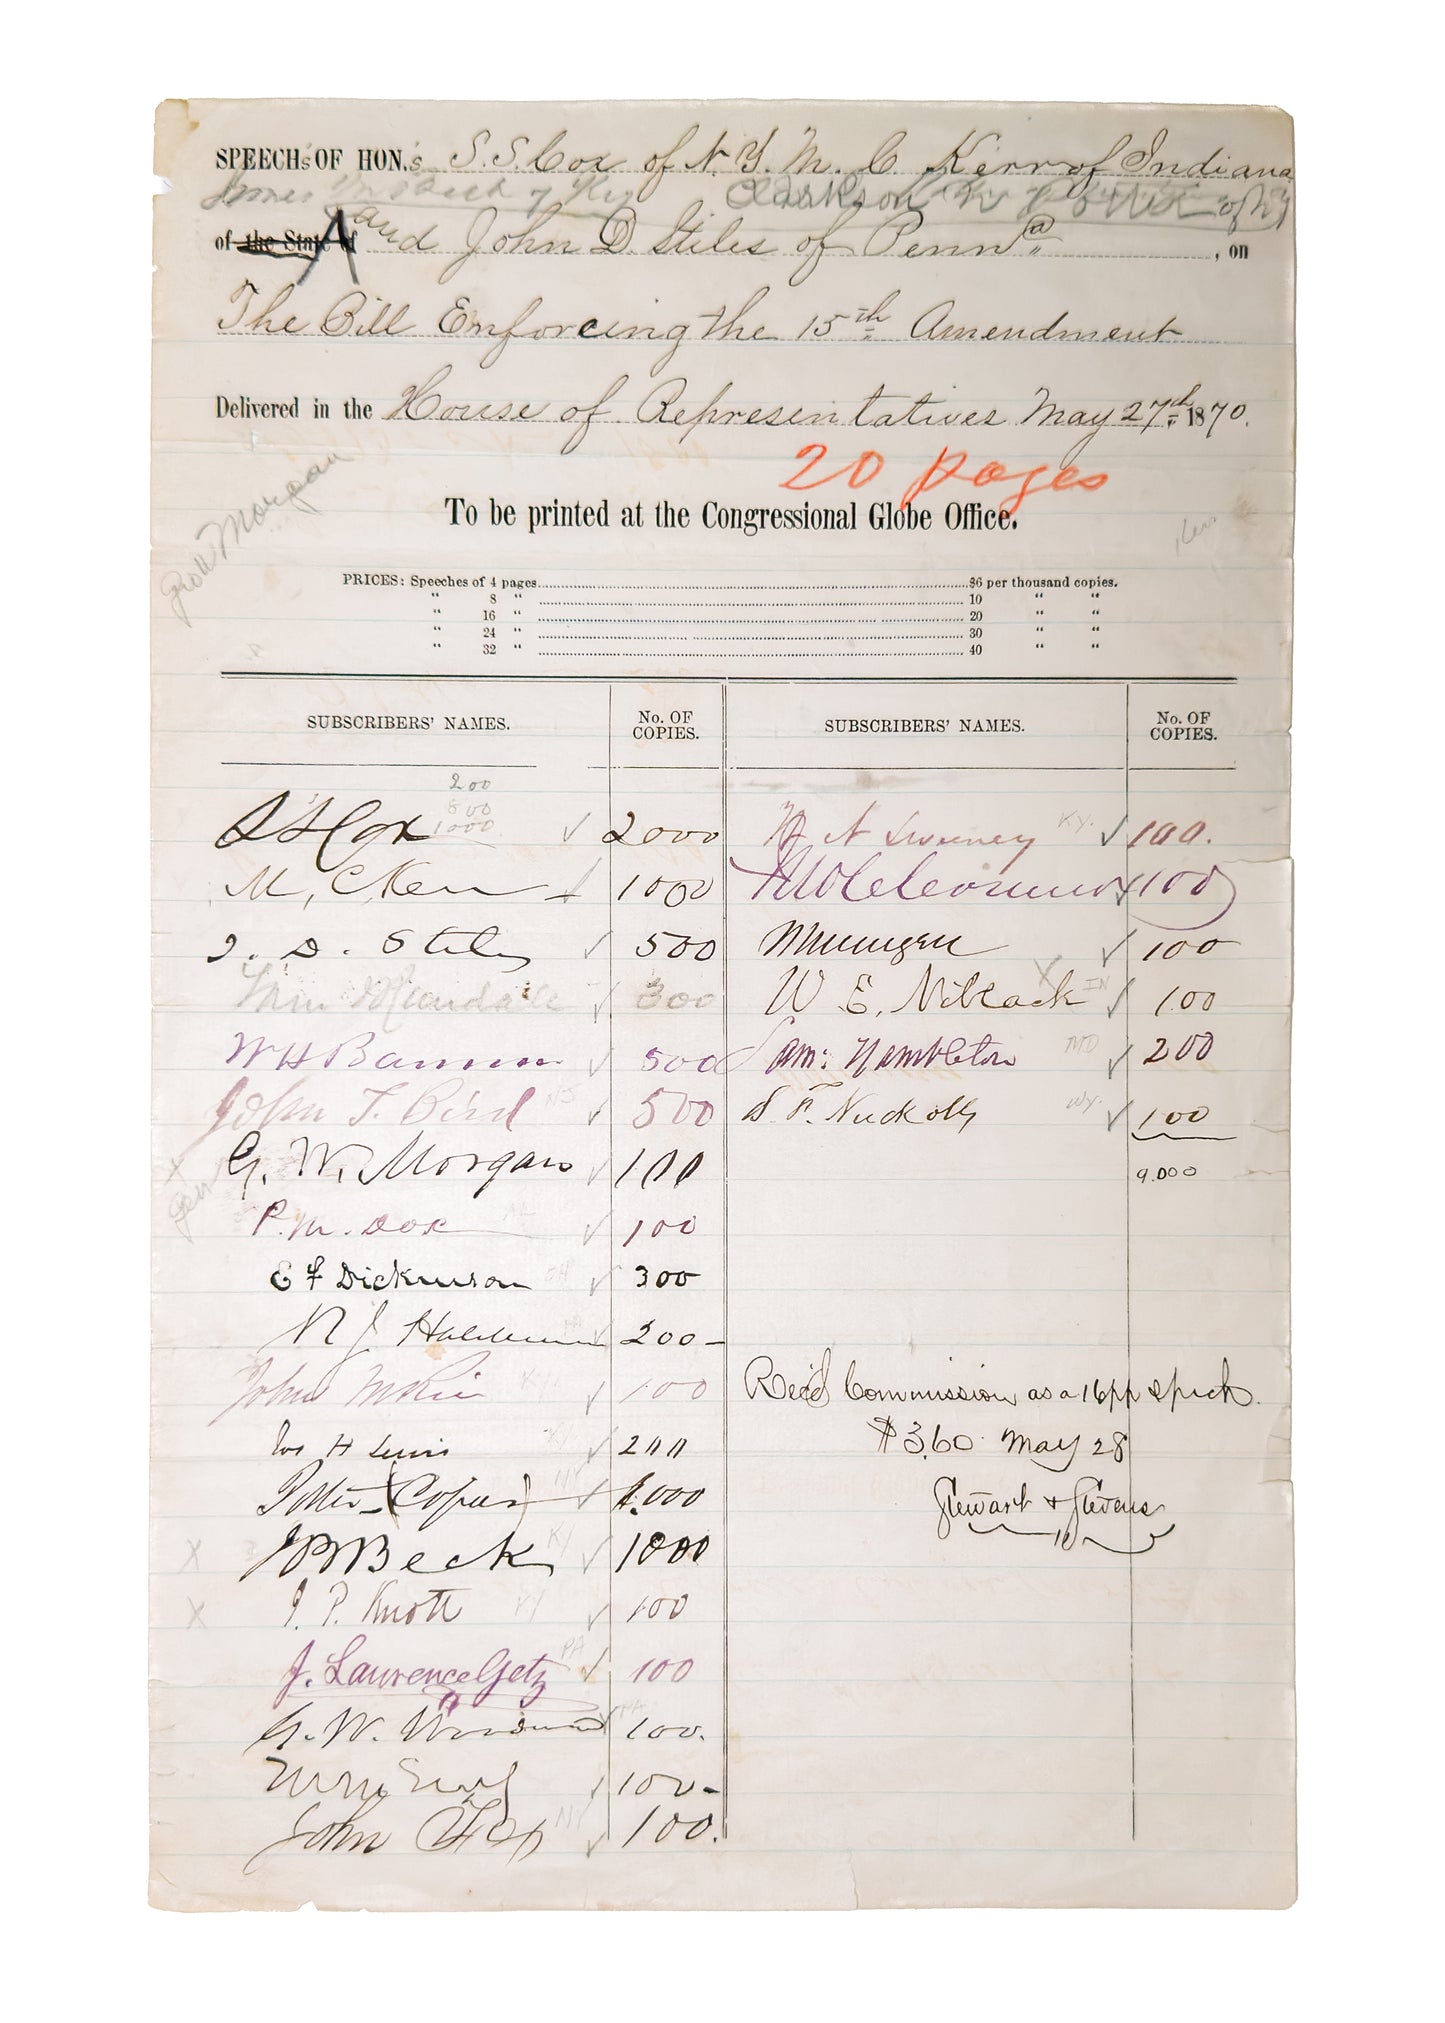 SPEECH's OF HON.'s S. S. Cox of N. Y. M. C Kerr of Indiana
James M Beck of Ky Clarkson N Potter of NY
of the State of and John D. Stiles of Penna, on
The Bill Enforcing the 15th Amendment
Delivered in the House of Representatives May 27th 1870.
20 pages
To be printed at the Congressional Globe Office.
Morgan
PRICES: Speeches of 4 pages $6 per thousand copies.
" 8 " 10 " "
" 16 " 20 " "
" 24 " 30 " "
" 32 " 40 " "
SUBSCRIBERS' NAMES. No. OF COPIES. SUBSCRIBERS' NAMES. No. OF COPIES.
200
800
1000
S S Cox ✓ 2000
M, C Kerr 1000
J. D. Stiles ✓ 500
✓ 300
W H Barnum ✓ 500
John T. Bird NJ ✓ 500
G. W. Morgan ✓ 100
P. M. Dox ✓ 100
E F Dickinson OH ✓ 300
R J Haldeman ✓ 200-
John McKie ✓ 100
Jos H Lewis KY ✓ 200
Potter (Copies) NY ✓ 1.000
X J B Beck KY ✓ 1000
X J. P. Knott KY ✓ 100
J. Lawrence Getz PA ✓ 100
G. W. Woodward PA 100.
✓ 100-
John Fox NY ✓ 100.
W N Sweeney KY. ✓ 100.
100
Mungen ✓ 100
W E. Niblack X IN ✓ 100
Saml Hambleton MD ✓ 200
S. F. Nuckolls WY. ✓ 100
9.000
Recd Commission as a 16pp speech.
$3.60 May 28
Stewart & Stevens